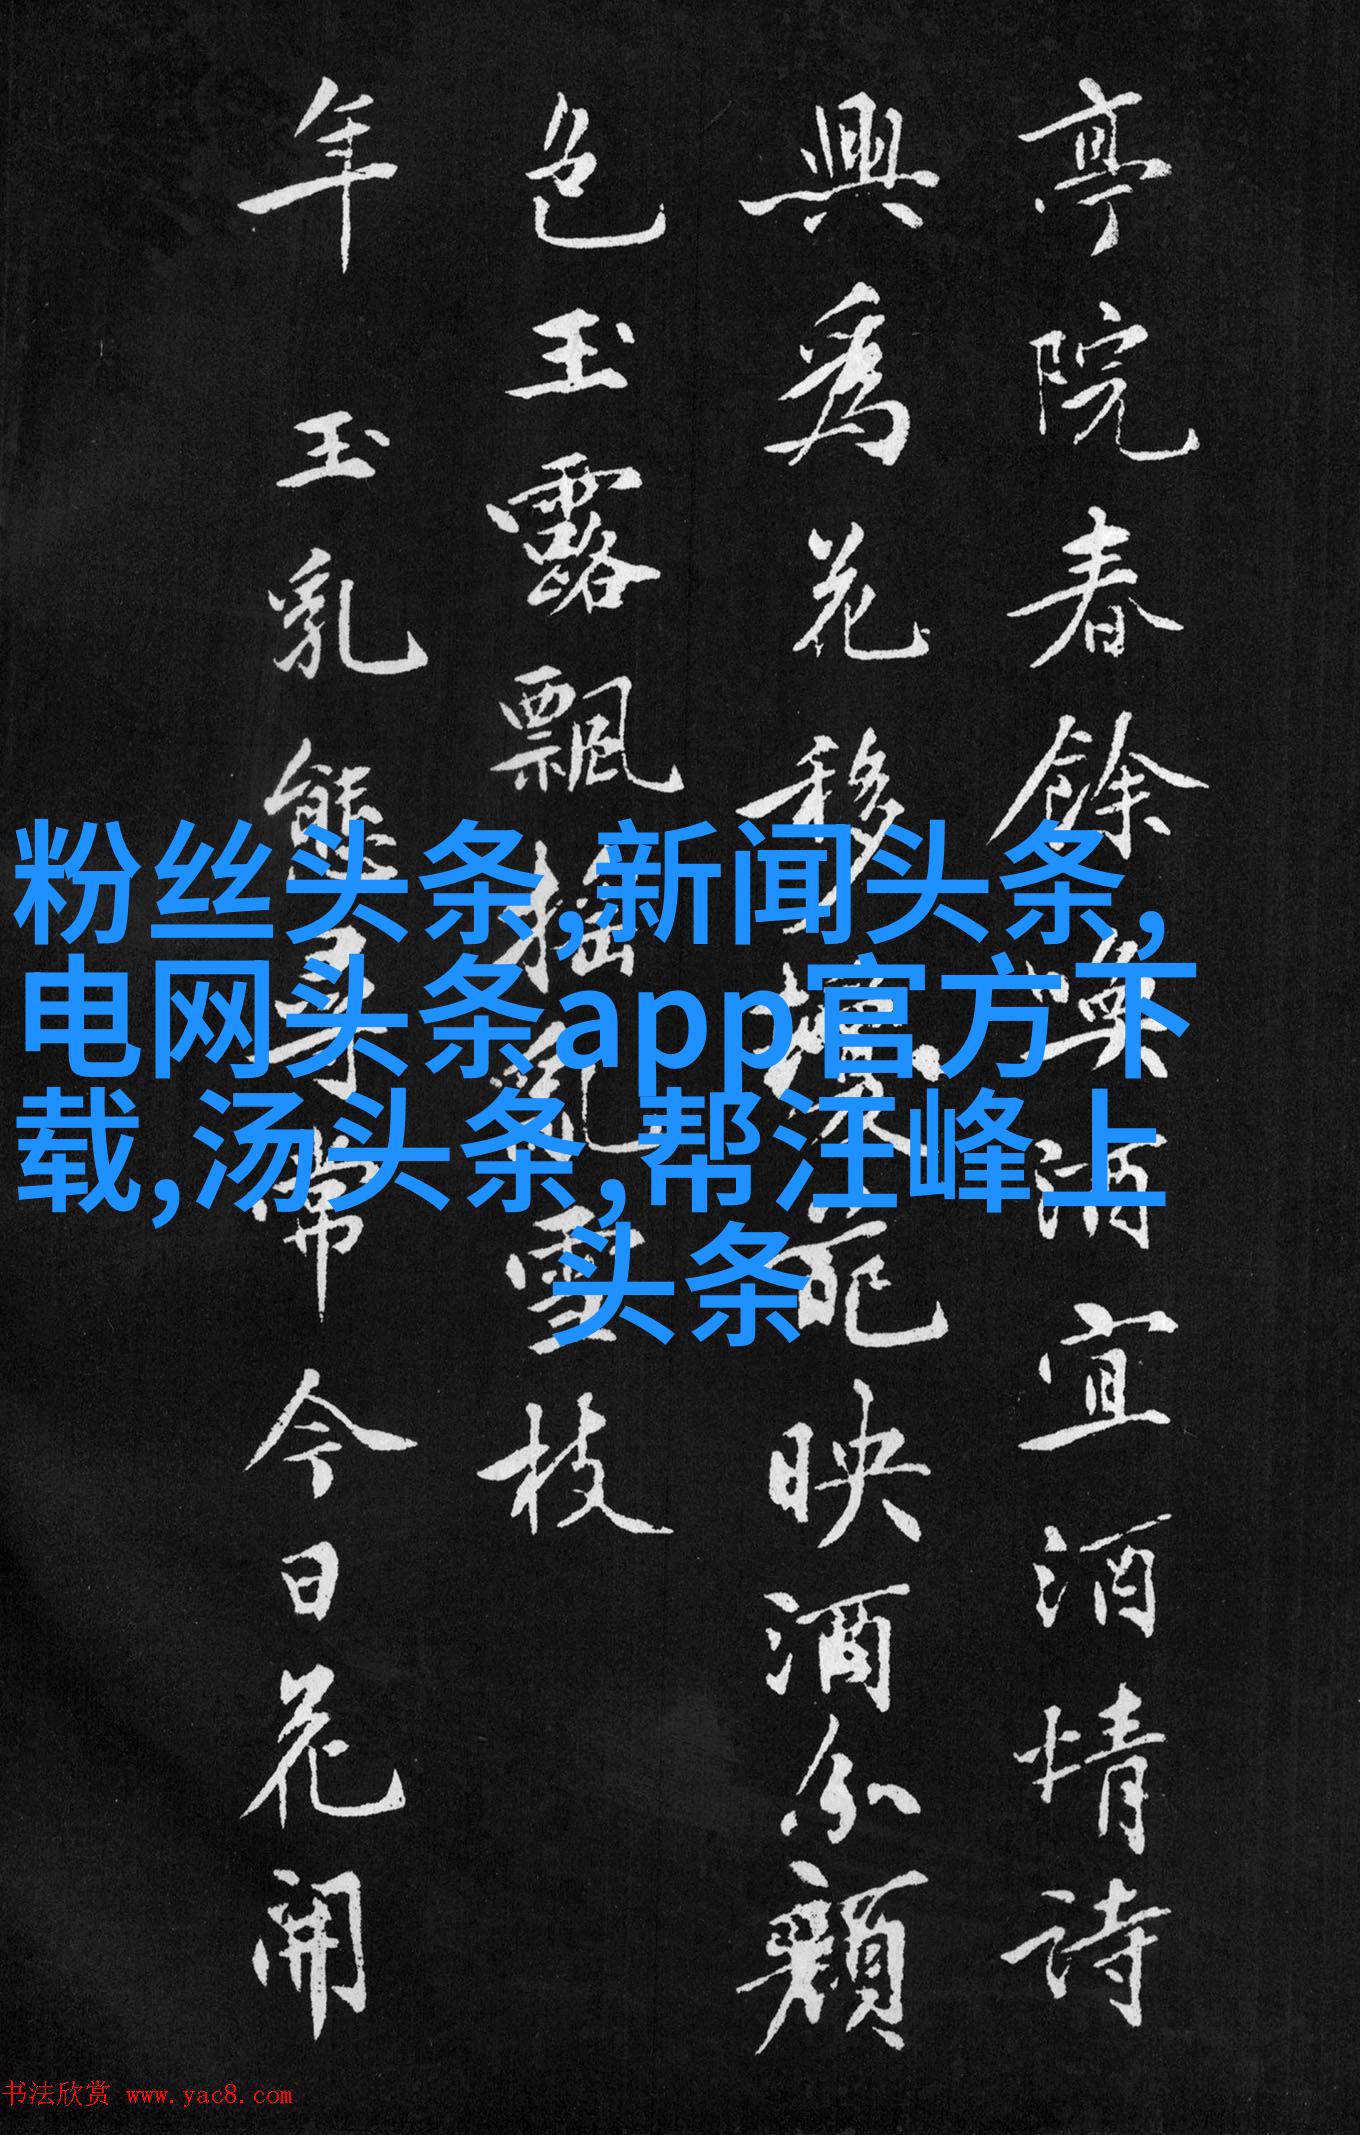 亭院春餘興酒宜酒情詩
興為花移攘花映酒分顏
色玉露飄搖亂雪枝
年玉乳態尋常今日花開
粉丝头条,新闻头条,
电网头条app官方下
载,汤头条,帮汪峰上
头条
书法欣赏 www.yac8.com